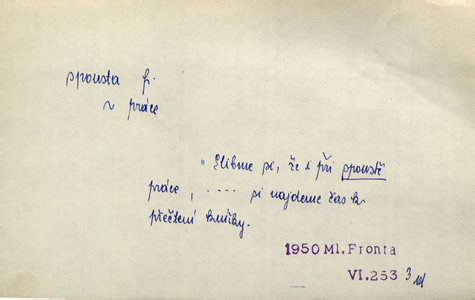 spousta f.
~ práce
"Slibme si, že i při spoustě
práce, .... si najdeme čas k
přečtení knížky.
1950 Ml. Fronta
VI.253 3